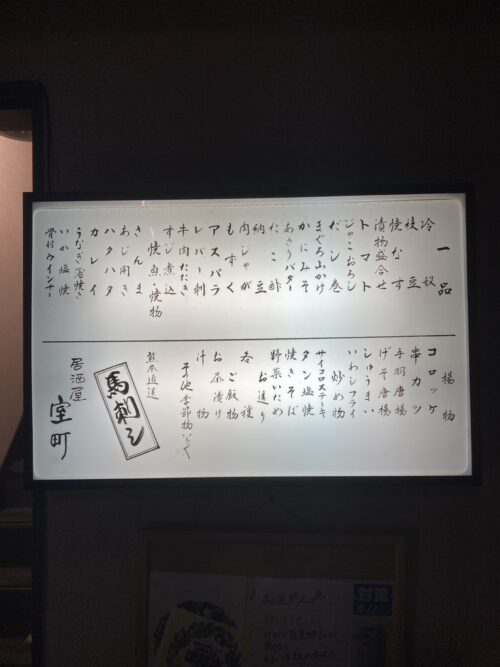 一品
冷奴
枝豆
焼なす
漬物盛合せ
トマト
じゃこおろし
だし巻
まぐろ山かけ
かにみそ
あさりバター
たこ酢
納豆
肉じゃが
もずく
アスパラ
レバー刺
牛肉たたき
すじ煮込
焼魚・焼物
さんま
あじ開き
ハタハタ
カレイ
うなぎ蒲焼き
いか塩焼
骨付ウインナー
揚物
コロッケ
串カツ
手羽唐揚
げそ唐揚
しゅうまい
いわしフライ
炒め物
サイコロステーキ
タン塩焼
焼きそば
野菜いため
お造り
各種
ご飯物
お茶漬け
汁物
その他季節物いろいろ
熊本直送
馬刺し
居酒屋
室町